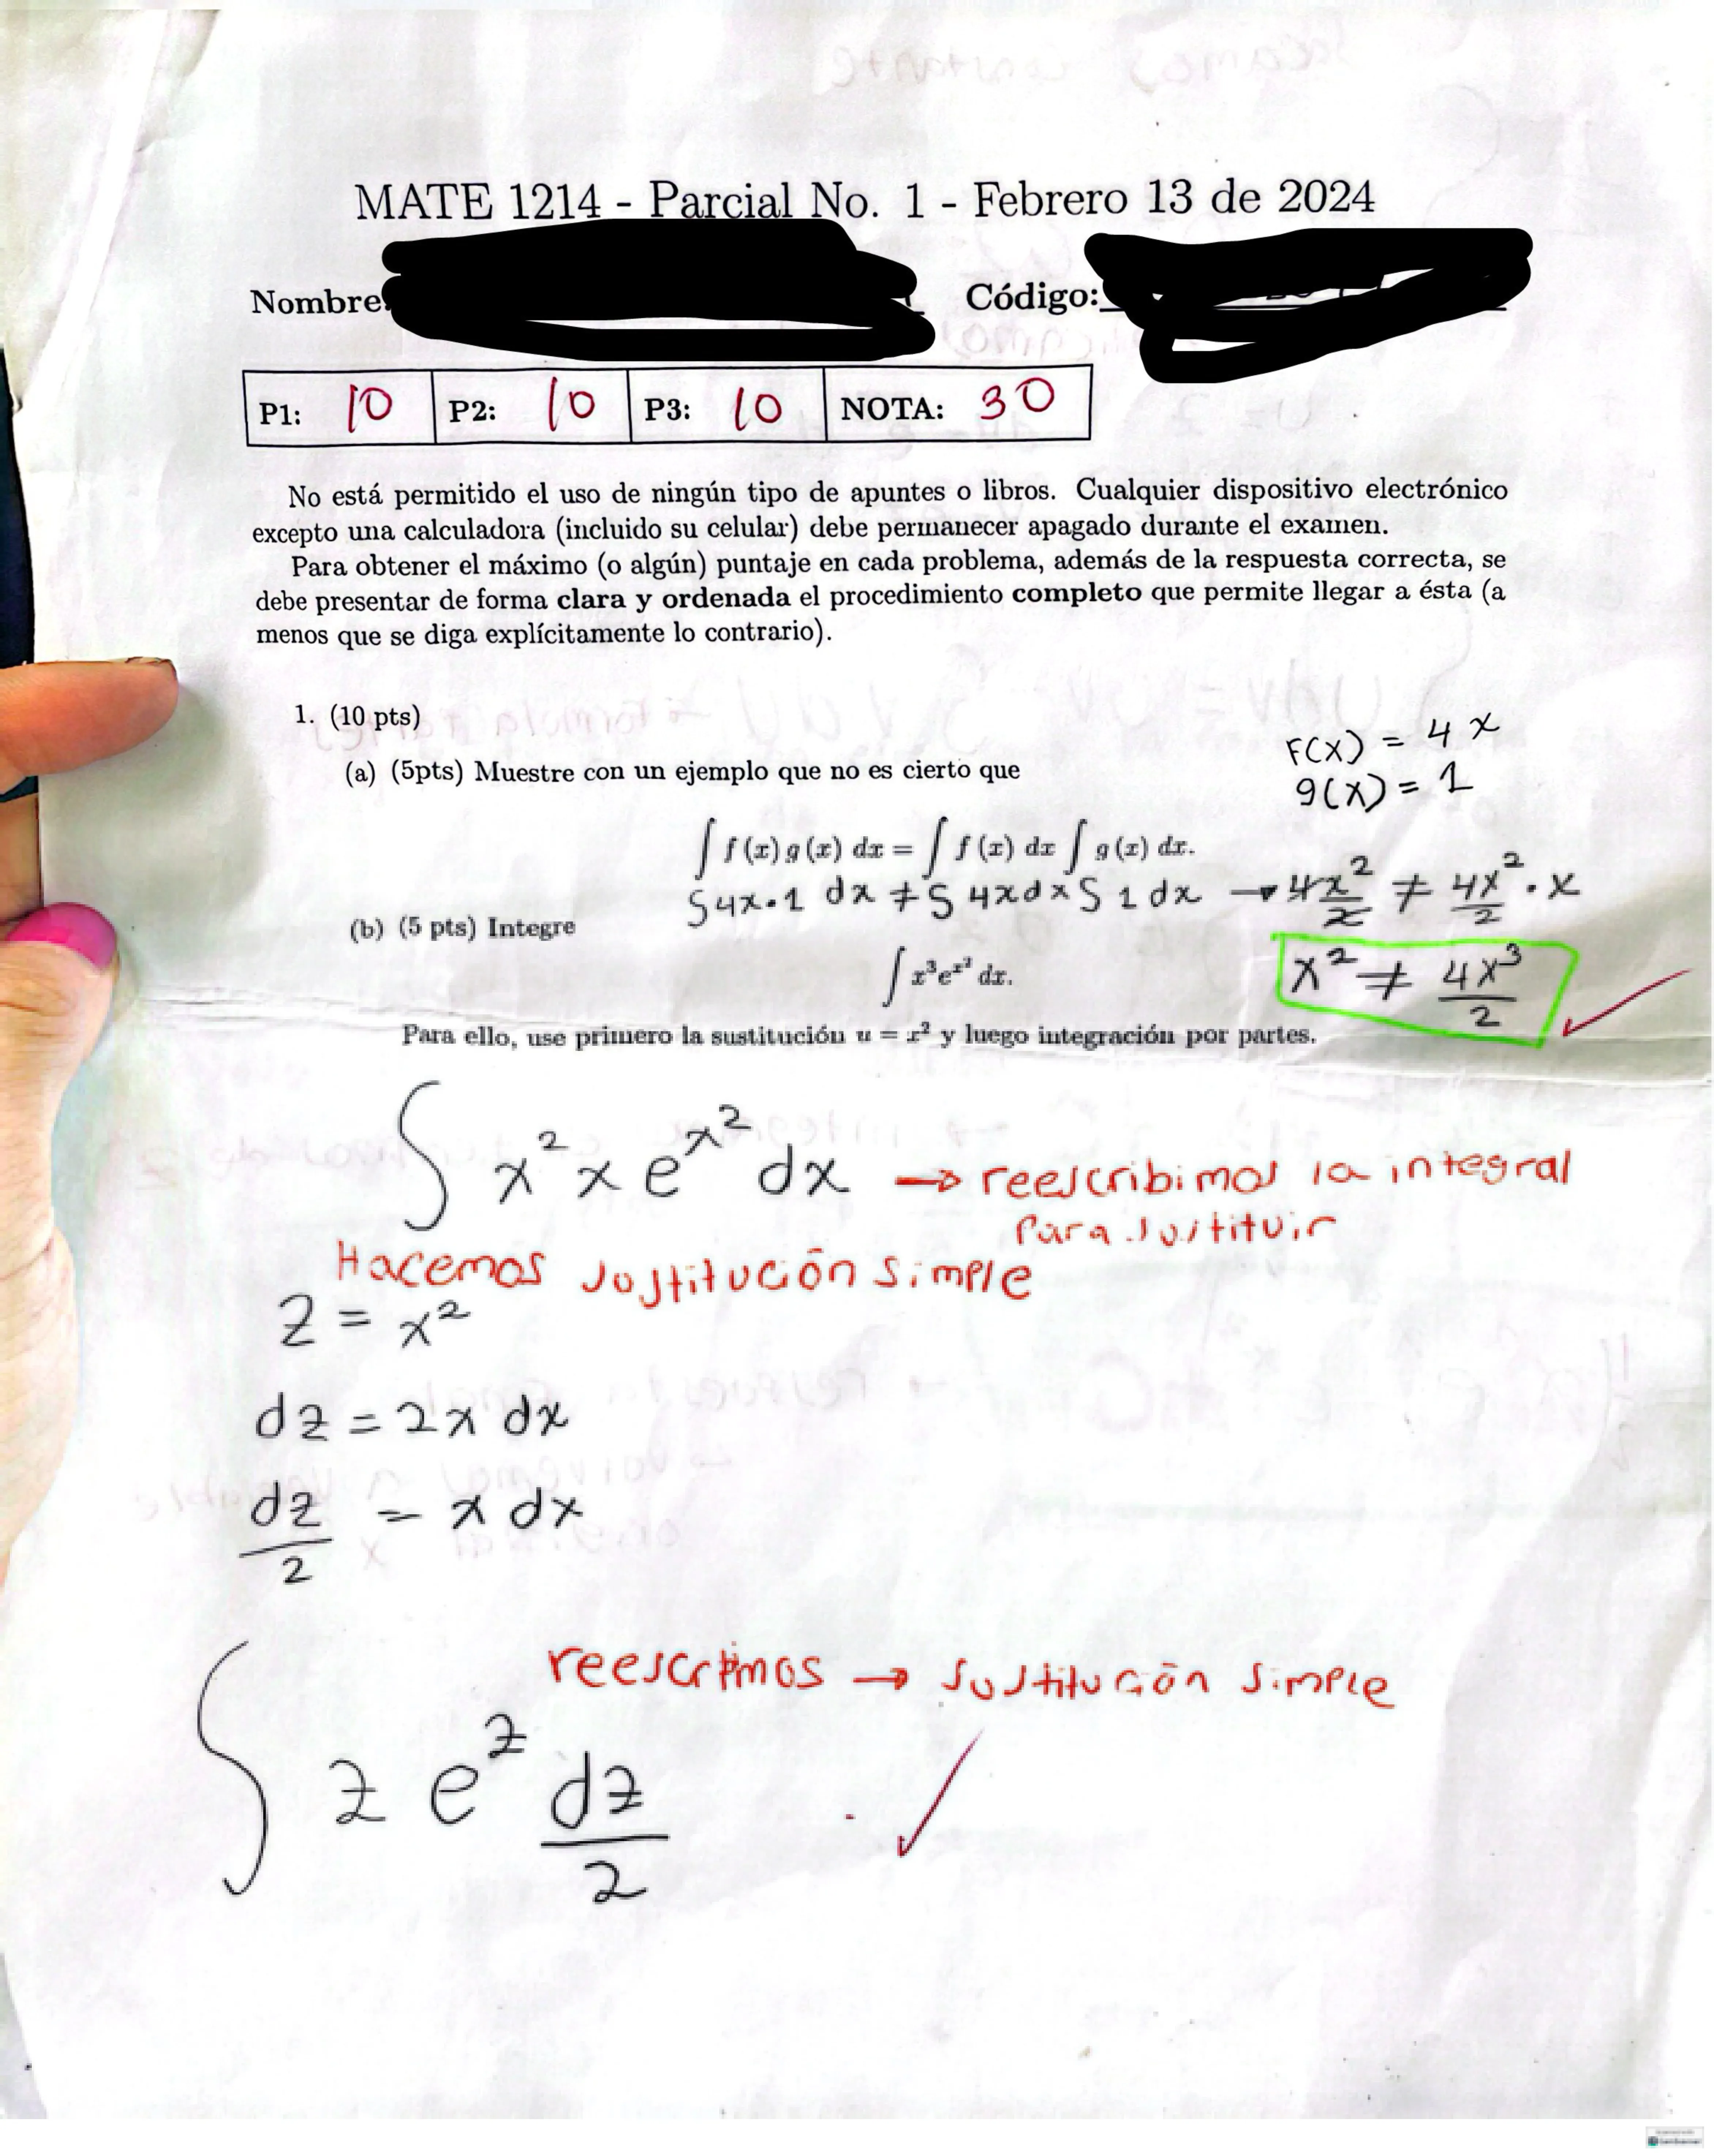 MATE 1214 - Parcial No. 1 - Febrero 13 de 2024
Nombre Código:
P1: 10 P2: 10 P3: 10 NOTA: 30
No está permitido el uso de ningún tipo de apuntes o libros. Cualquier dispositivo electrónico
excepto una calculadora (incluido su celular) debe permanecer apagado durante el examen.
Para obtener el máximo (o algún) puntaje en cada problema, además de la respuesta correcta, se
debe presentar de forma clara y ordenada el procedimiento completo que permite llegar a ésta (a
menos que se diga explícitamente lo contrario).
1. (10 pts)
F(x) = 4x
(a) (5pts) Muestre con un ejemplo que no es cierto que
g(x) = 1
∫ f(x) g(x) dx = ∫ f(x) dx ∫ g(x) dx.
∫ 4x·1 dx ≠ ∫ 4x dx ∫ 1 dx → 4x²/2 ≠ 4x²/2 · x
(b) (5 pts) Integre
∫ x³e^x² dx.
x² ≠ 4x³/2
Para ello, use primero la sustitución u = x² y luego integración por partes.
∫ x² x e^x² dx → reescribimos la integral
para sustituir
Hacemos sustitución simple
z = x²
dz = 2x dx
dz/2 = x dx
reescrimos → sustitución simple
∫ z e^z dz/2